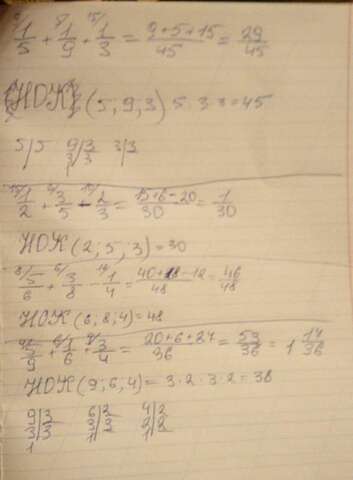 9/1/5 + 5/1/9 + 15/1/3 = 9+5+15/45 = 29/45
НОК (5, 9, 3) 5·3·3=45
5|5 9|3 3|3
3|3
1/2 + 1/5 - 2/3 = 15+6-20/30 = 1/30
НОК (2; 5, 3) = 30
8/5/6 + 6/3/8 - 1/4 = 40+18-12/48 = 46/48
НОК (6, 8, 4) = 48
/9 + 1/6 + 3/4 = 20+6+27/36 = 53/36 = 1 17/36
НОК (9, 6, 4) = 3·2·3·2=38
9|3 6|2 4|2
3|3 3|3 2|2
1 1 1